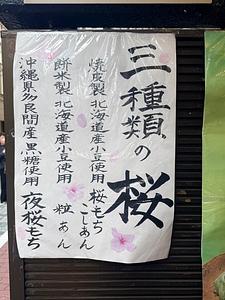 三種類の桜
焼皮製 北海道産小豆使用 桜もち こしあん
餅米製 北海道産小豆使用 粒あん
沖縄県多良間産黒糖使用 夜桜もち